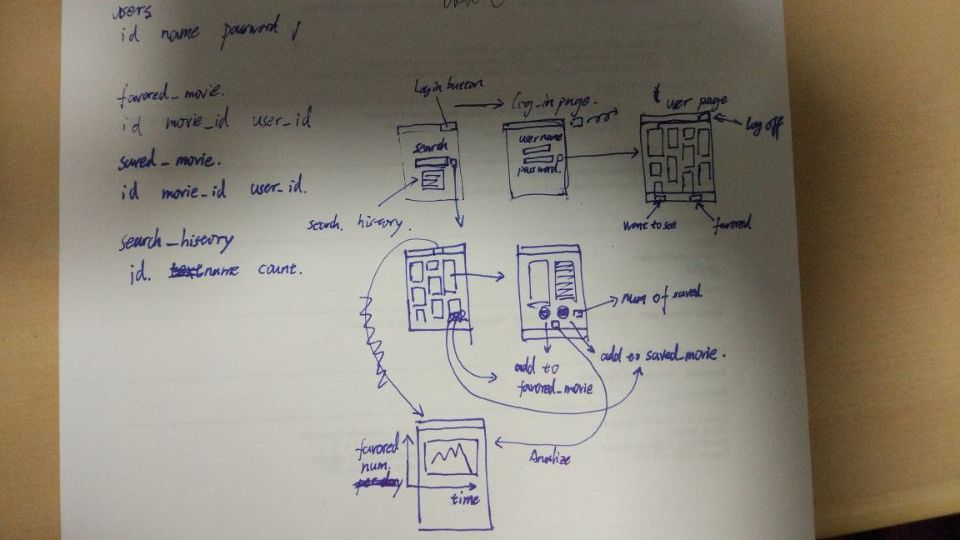 users
id name password
favored_movie.
id movie_id user_id
saved_movie.
id movie_id user_id.
search_history
id. name count.
Login button
Log_in page.
user page
Log off
search
username
password
search history.
want to see
favored
num of saved
add to
favored_movie
add to saved_movie.
Analize
favored
num.
per day
time